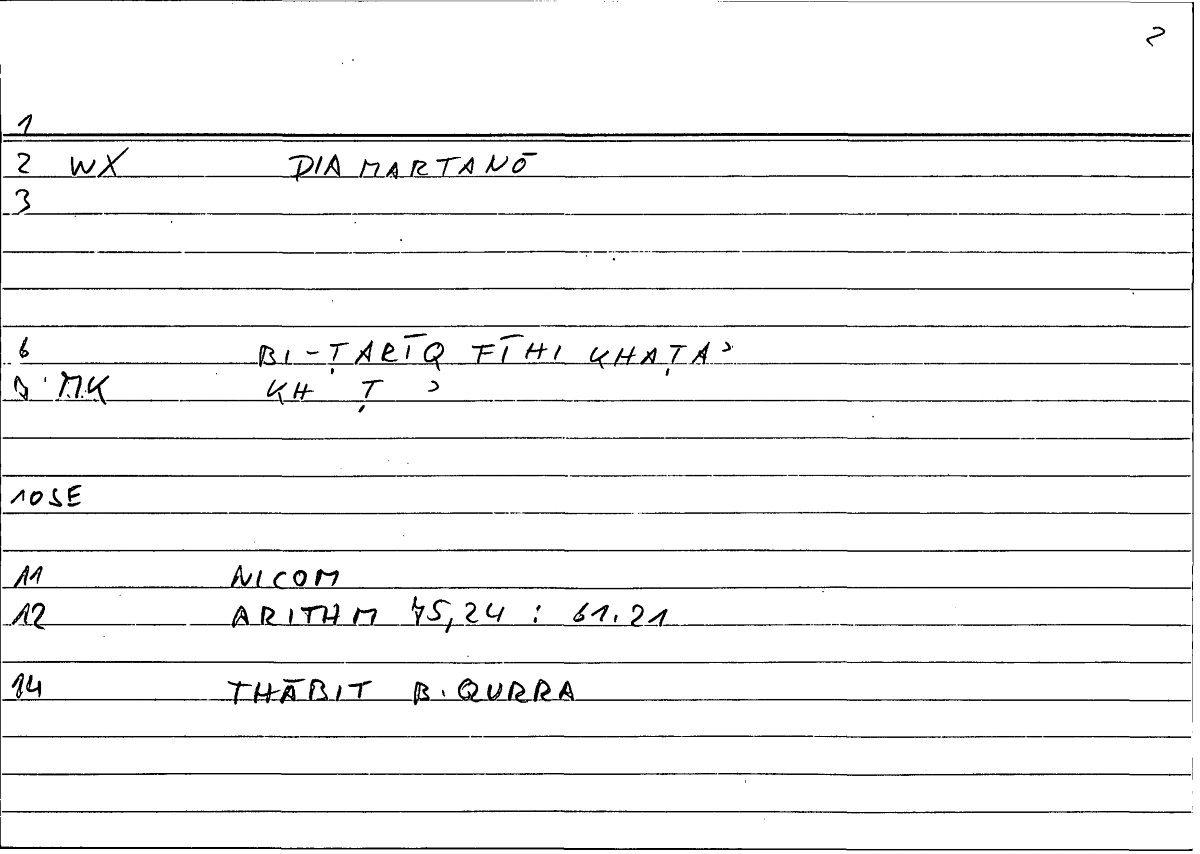 2
1
2 WX DIAMARTANŌ
3
6 BI-ṬARĪQ FĪHI KHAṬAʾ
MK KH Ṭ ʾ
10 SE
11 NICOM
12 ARITHM 75,24 : 61.21
14 THĀBIT B. QURRA